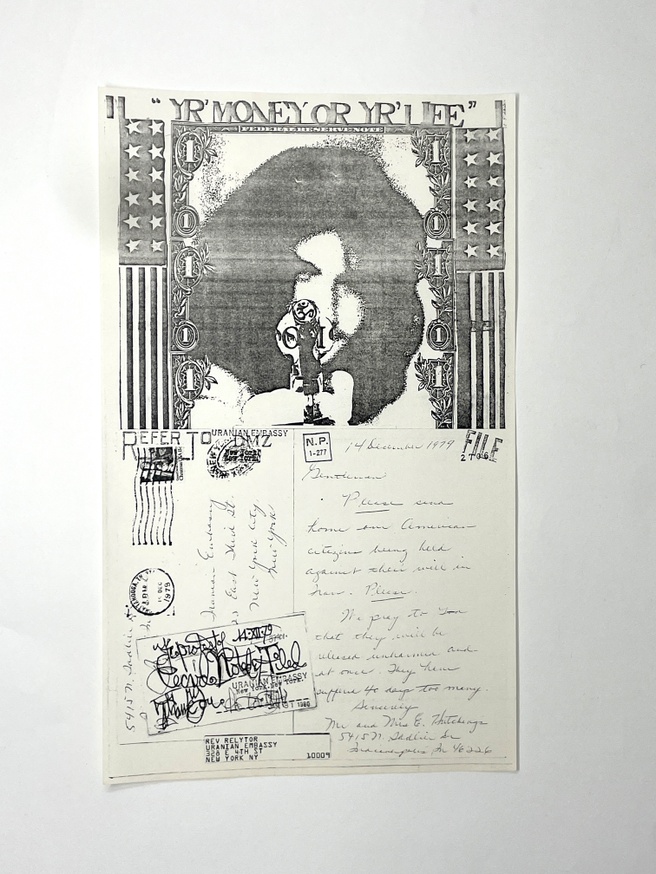 " YR' MONEY OR YR' LIFE "
FEDERAL RESERVE NOTE
1 1
1 1
1 1
1 1
1 1
REFER TO DMZ
URANIAN EMBASSY
N.P.
1-277
14 December 1979
FILE
Gentlemen
Please send
home our American
citizens being held
against their will in
Iran. Please.
We pray to You
that they will be
released unharmed and
at once. They have
suffered 40 days too many.
Sincerely
Mr and Mrs E. Hitchings
5415 N.
Indianapolis In 46226
Iranian Embassy
East
New York City
New York
DEC
1979
5415 N.
14·XII·79
URANIAN EMBASSY
NEW YORK, NEW YORK
Thank You
1980
REV RELYTOR
URANIAN EMBASSY
328 E 4TH ST
NEW YORK NY 10009